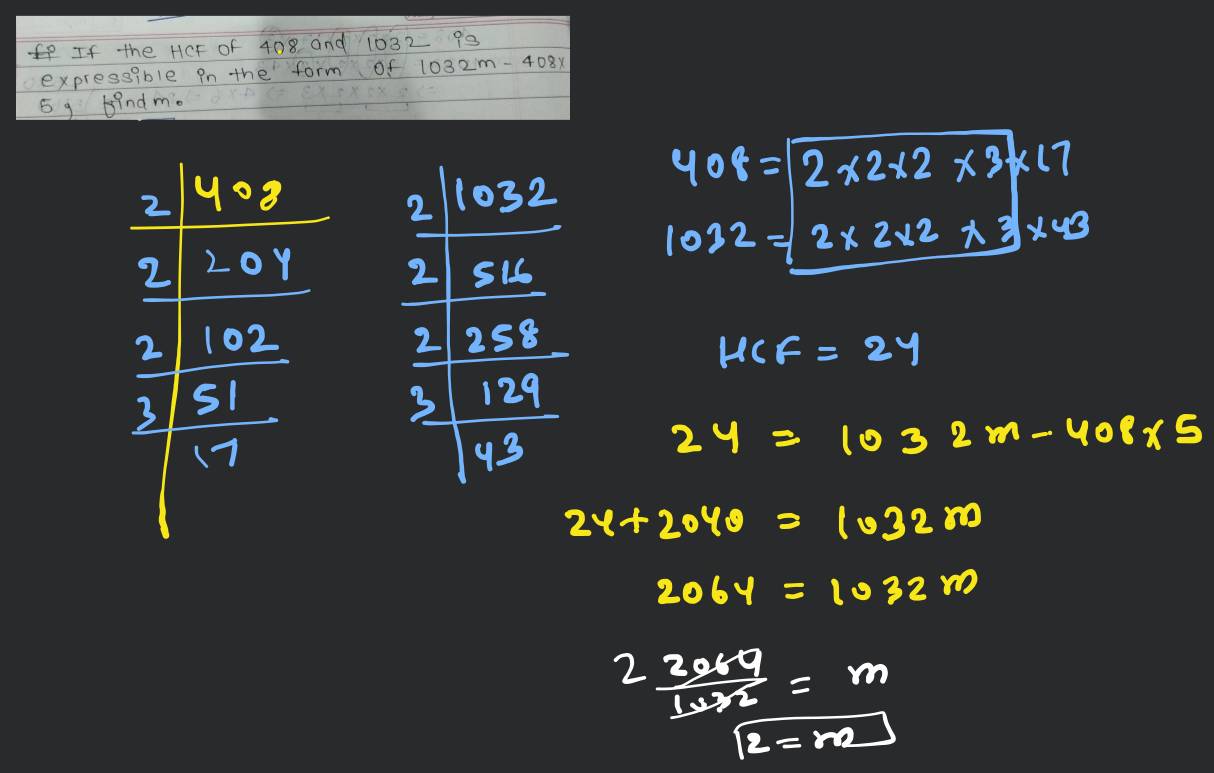 If the HCF of 408 and 1032 is
expressible in the form of 1032m - 408x
5, find m.
2 408
2 204
2 102
3 51
17
2 1032
2 516
2 258
3 129
43
408 = 2 x 2 x 2 x 3 x 17
1032 = 2 x 2 x 2 x 3 x 43
HCF = 24
24 = 1032m - 408 x 5
24 + 2040 = 1032m
2064 = 1032m
2 2064/1032 = m
2 = m